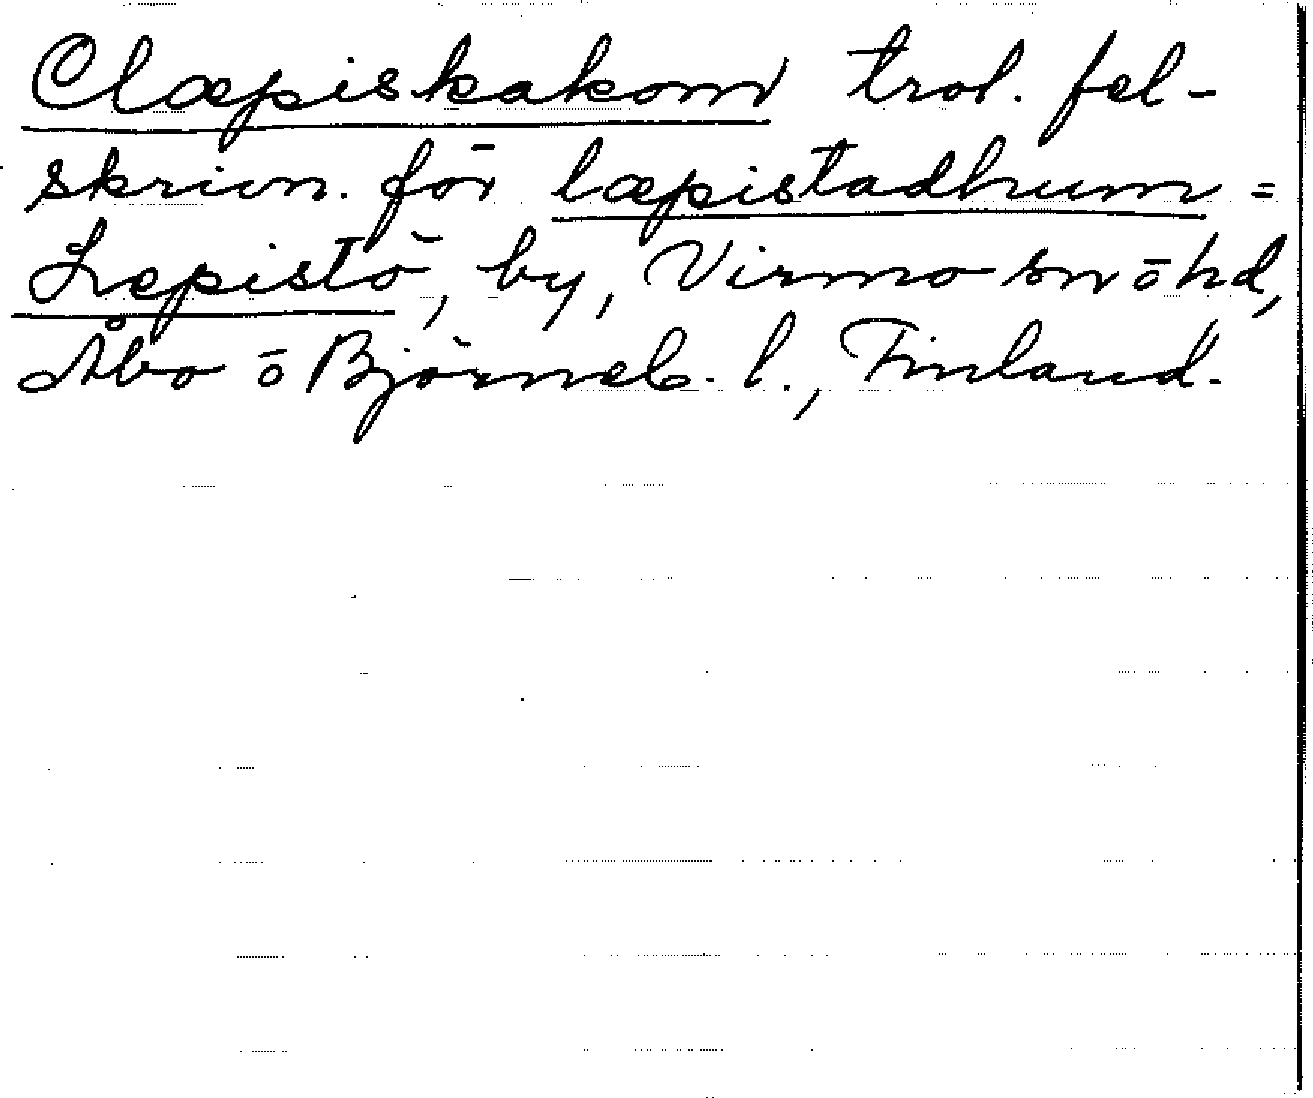 Clæpiskakom trol. fel-
skrivn. för læpistadhum =
Lepistö, by, Virmo sn ō hd,
Åbo ō Björneb. l., Finland.